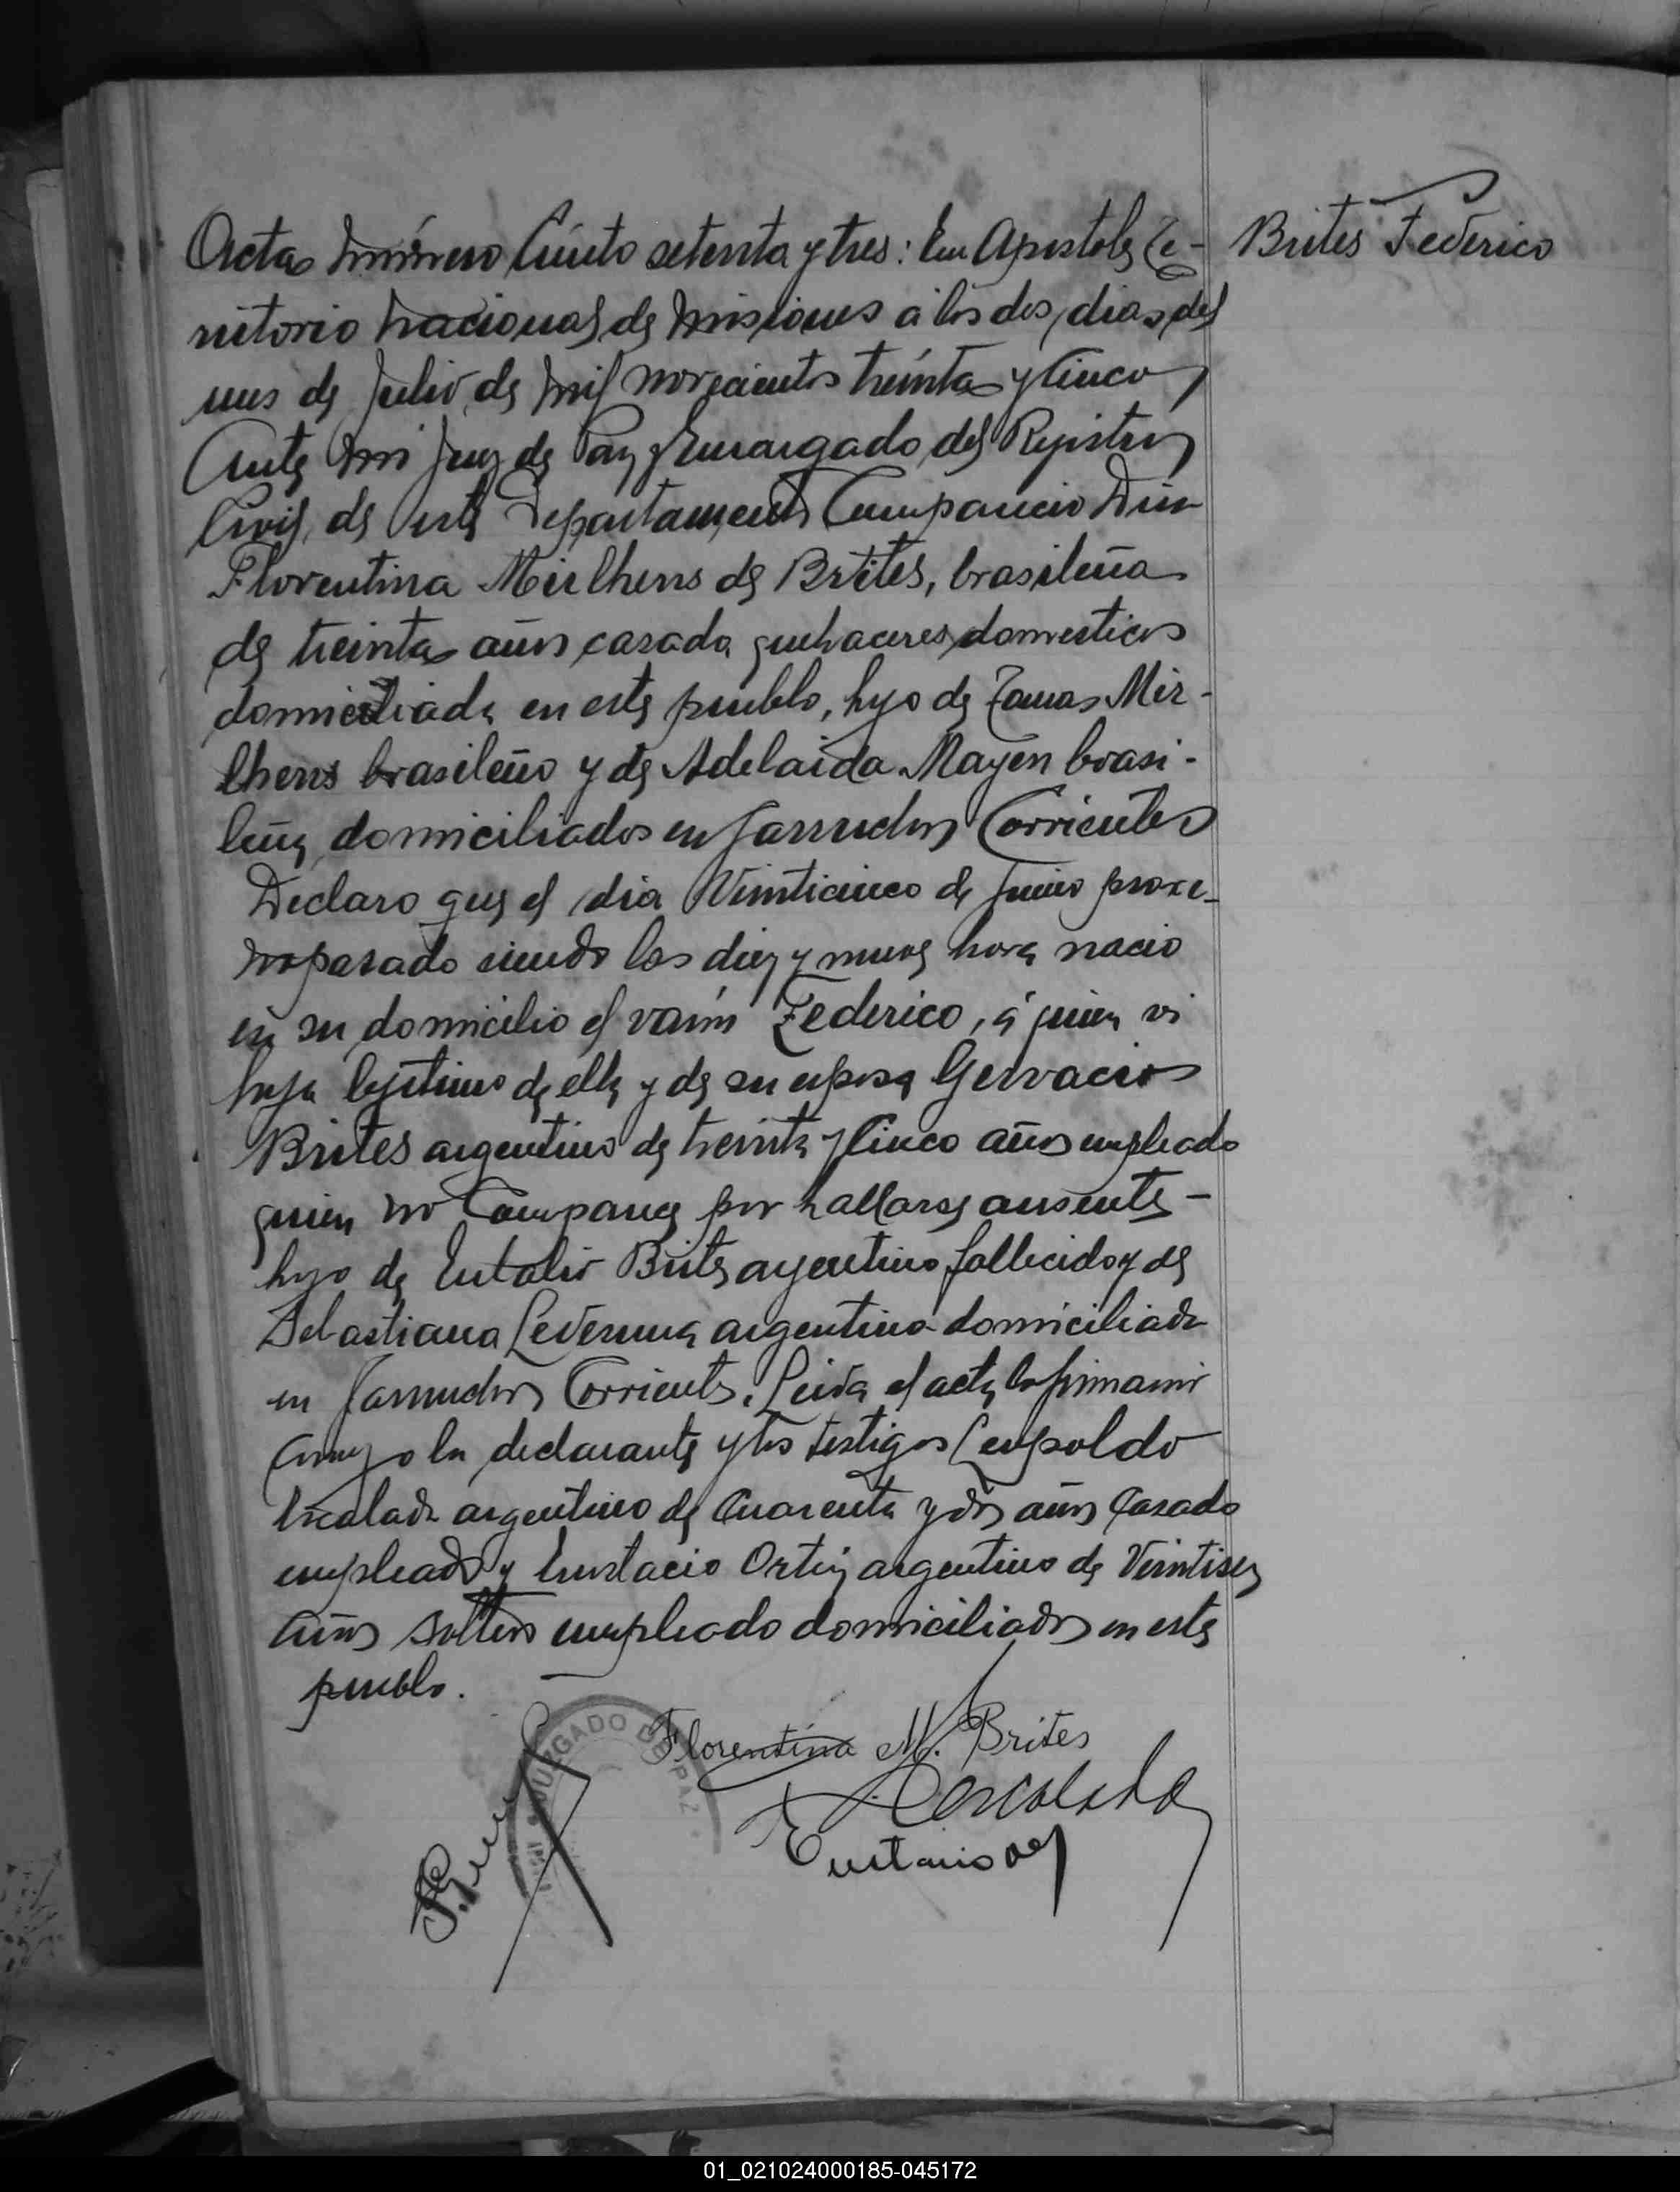 Acta número Ciento setenta y tres: En Apostoles Te-
rritorio Nacional de Misiones a los dos dias del
mes de Julio de mil novecientos treinta y cinco
Ante mi Juez de Paz y Encargado del Registro
Civil de este Departamento Comparecio Don
Florentina Mirlhens de Brites, brasileña
de treinta años casada quehaceres domesticos
domiciliada en este pueblo, hijo de Tomas Mir-
lhens brasileño y de Adelaida Mayen brasi-
leña domiciliados en Corrientes
Declaro que el dia Veinticinco de Junio proxi-
mopasado siendo las diez y nueve hora nacio
en su domicilio el varón Federico, á quien vi
hijo lejitimo de ella y de su esposo Gervacio
Brites argentino de treinta y Cinco años empleado
quien no Comparece por hallarse ausente -
hijo de Eulalio Brites argentino fallecido y de
Sebastiana Ledesma argentina domiciliada
en Corrientes. Leida el acta la firma mi
Conmigo la declarante y los testigos Leopoldo
Escalada argentino de Cuarenta y dos años Casado
empleado y Eustacio Ortiz argentino de Veintiseis
años soltero empleado domiciliados en este
pueblo.
Brites Federico
JUZGADO DE PAZ
Florentina M. Brites
Escalada
Eustacio
01_021024000185-045172